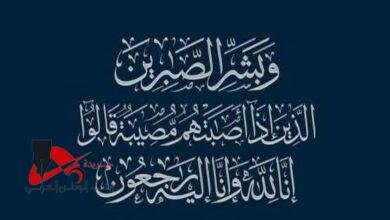 وَبَشِّرِ الصَّٰبِرِينَ
الَّذِينَ إِذَآ أَصَٰبَتْهُم مُّصِيبَةٌ قَالُوٓا۟
إِنَّا لِلَّهِ وَإِنَّآ إِلَيْهِ رَٰجِعُونَ
جريدة
الوطن العربي